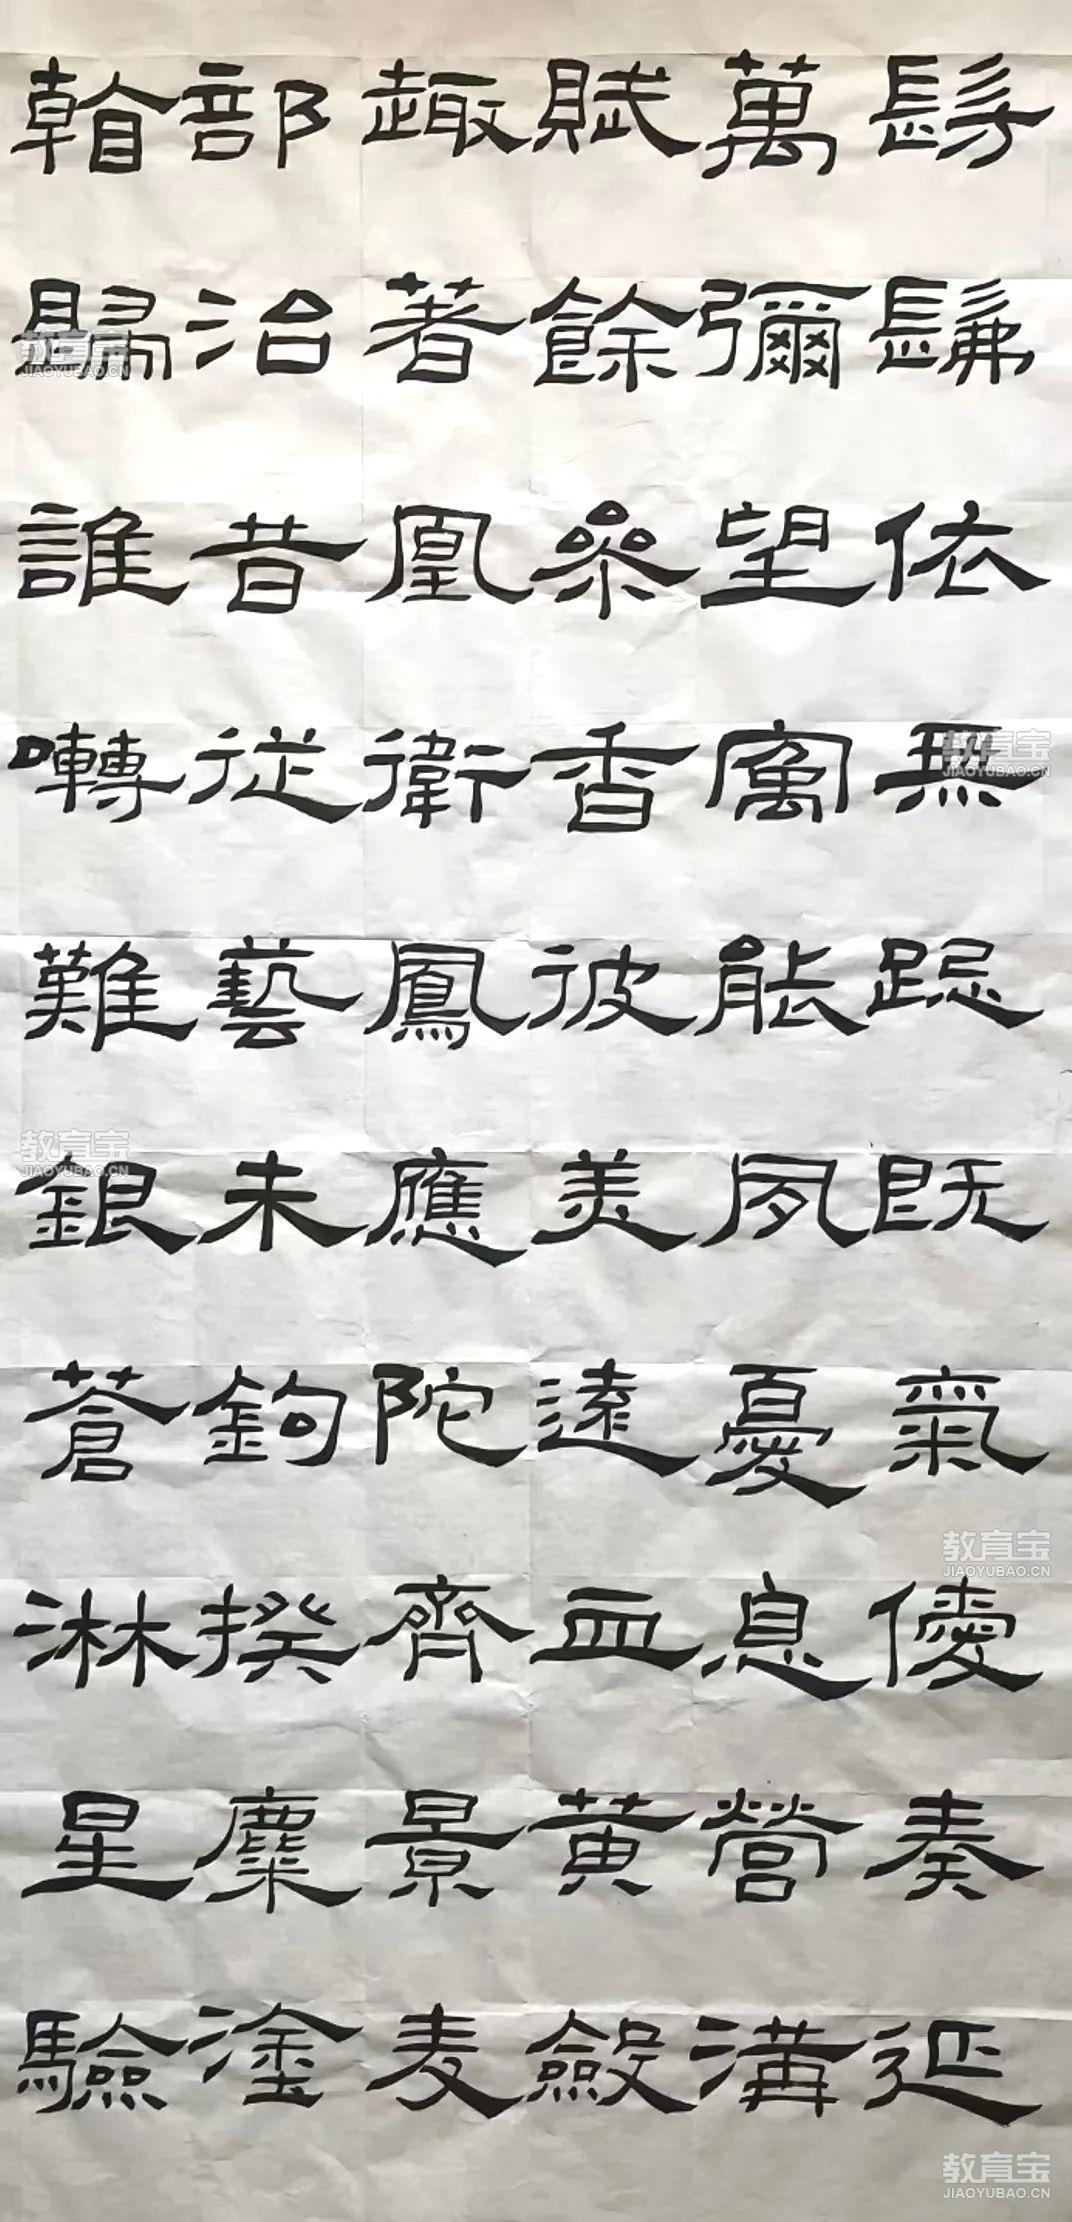 髣髴依無跽既氣優奏延
萬彌望寓能夙憂息營溝
賦餘參香彼美遠血黃斂
趣著凰衛鳳應陀齊景麦
部治昔從藝未鉤揆麋塗
翰歸誰囀難銀蒼淋星驗
教育宝
JIAOYUBAO.CN
教育宝
JIAOYUBAO.CN
教育宝
JIAOYUBAO.CN
教育宝
JIAOYUBAO.CN
教育宝
JIAOYUBAO.CN